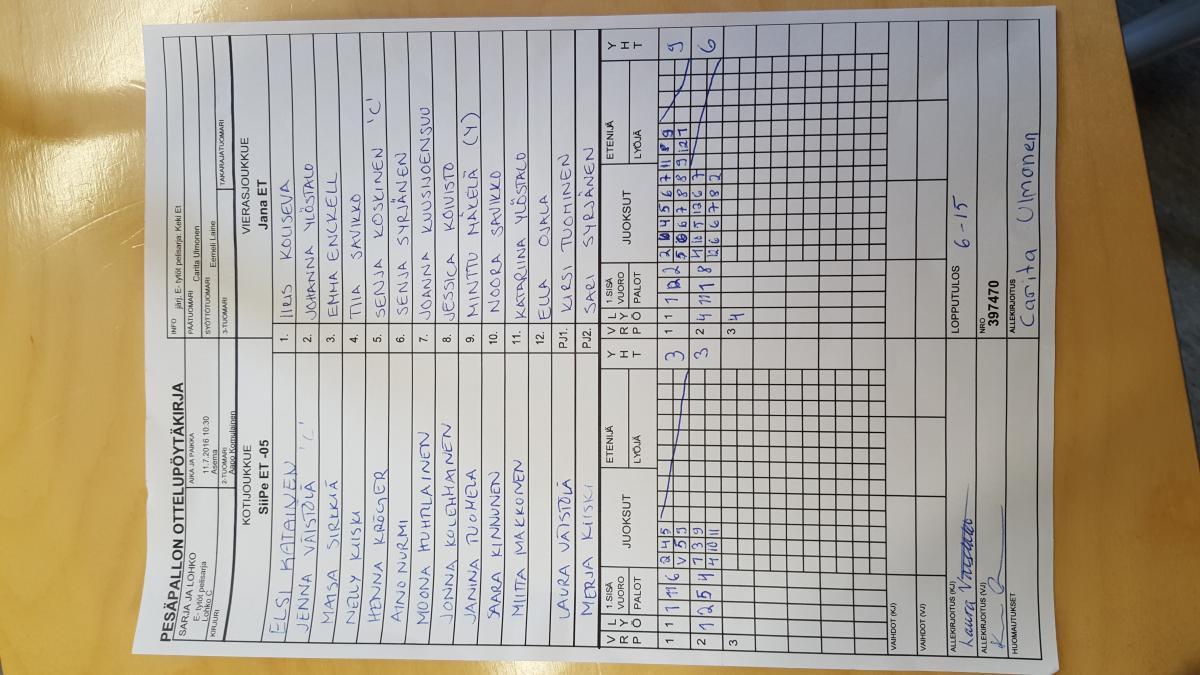 PESÄPALLON OTTELUPÖYTÄKIRJA
SARJA JA LOHKO
E- tytöt pelisarja
Lohko C
AIKA JA PAIKKA
11.7.2016 10:30
Asema
INFO järj. E- tytöt pelisarja: Keki Et
PÄÄTUOMARI Carita Ulmonen
SYÖTTÖTUOMARI Eemeli Laine
KIRJURI
2-TUOMARI
Aapo Komulainen
3-TUOMARI
TAKARAJATUOMARI
KOTIJOUKKUE
SiiPe ET -05
VIERASJOUKKUE
Jana ET
ELSI KATAINEN 1. IIRIS KOUSEVA
JENNA VÄISTÖLÄ 'C' 2. JOHANNA YLÖSTALO
MAISA SIRKKIÄ 3. EMMA ENCKELL
NELLY KIISKI 4. TIIA SAVIKKO
HENNA KRÖGER 5. SENJA KOSKINEN 'C'
AINO NURMI 6. SENJA SYRJÄNEN
MOONA HUHTILAINEN 7. JOANNA KUUSIJOENSUU
JONNA KOLEHMAINEN 8. JESSICA KOIVISTO
JANINA TUOMELA 9. MINTTU MÄKELÄ (Y)
SAARA KINNUNEN 10. NOORA SAVIKKO
MIITA MAKKONEN 11. KATARIINA YLÖSTALO
12. ELLA OJALA
LAURA VÄISTÖLÄ PJ1. KIRSI TUOMINEN
MERJA KIISKI PJ2. SARI SYRJÄNEN
V R L Y P Ö 1.SISÄ VUORO PALOT JUOKSUT ETENIJÄ LYÖJÄ Y H T
V R L Y P Ö 1.SISÄ VUORO PALOT JUOKSUT ETENIJÄ LYÖJÄ Y H T
1 1 1 11 6 2 4 5 3
V 5 9
1 1 1 2 2 4 5 6 7 11 8 9 9
6 7 8 8 9 12 1
2 1 2 5 4 1 3 9 3
4 10 11
2 4 11 1 8 4 12 6 7 6
12 6 6 7 8 2
3
3 4
VAIHDOT (KJ)
VAIHDOT (VJ)
ALLEKIRJOITUS (KJ)
Laura
LOPPUTULOS 6-15
ALLEKIRJOITUS (VJ)
NRO
397470
HUOMAUTUKSET
ALLEKIRJOITUS
Carita Ulmonen